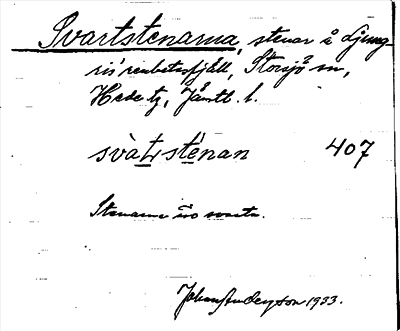 Svartstenarna, stenar å Ljung-
ris' renbetesfjäll, Storsjö sn,
Hede tg, Jämtl. l.
svàʈʂtènan 407
Stenarna äro svarta.
Johan Anderzson 1933.